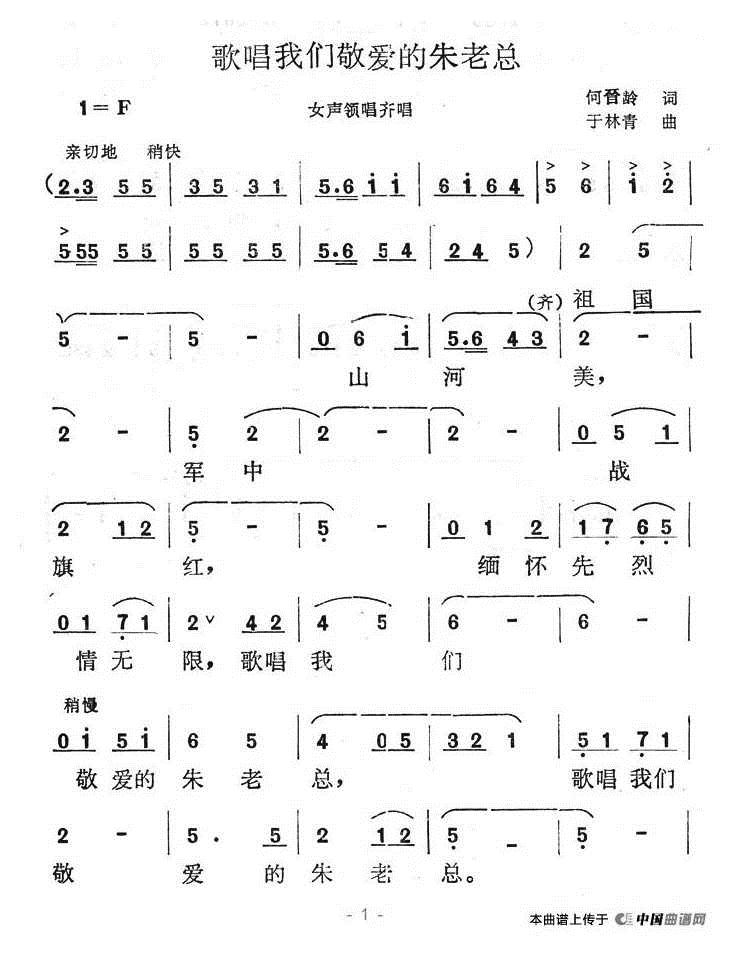 歌唱我们敬爱的朱老总
1=F 女声领唱齐唱 何晉龄 词
于林青 曲
亲切地 稍快
(2.3 5 5 | 3 5 3 1 | 5.6 i i | 6 i 6 4 | 5 6 | i 2 |
5 55 5 5 | 5 5 5 5 | 5.6 5 4 | 2 4 5) | 2 5 |
(齐)祖 国
5 - | 5 - | 0 6 i | 5.6 4 3 | 2 - |
山 河 美,
2 - | 5 2 | 2 - | 2 - | 0 5 1 |
军 中 战
2 1 2 | 5 - | 5 - | 0 1 2 | 1 7 6 5 |
旗 红, 缅 怀 先 烈
0 1 7 1 | 2 ˅ 4 2 | 4 5 | 6 - | 6 - |
情 无 限, 歌唱 我 们
稍慢
0 i 5 i | 6 5 | 4 0 5 | 3 2 1 | 5 1 7 1 |
敬 爱的 朱 老 总, 歌唱 我们
2 - | 5 . 5 | 2 1 2 | 5 - | 5 - |
敬 爱 的 朱 老 总。
- 1 -
本曲谱上传于 中国曲谱网